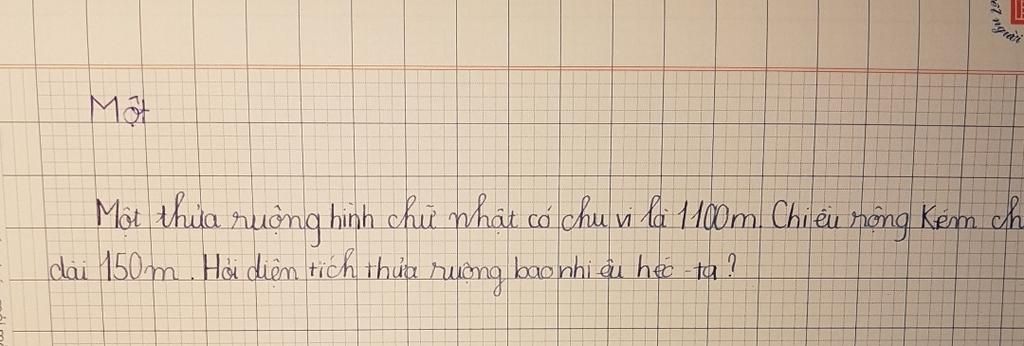 ết người
Một
Một thửa ruộng hình chữ nhật có chu vi là 1100m. Chiều rộng kém ch
dài 150m. Hỏi diện tích thửa ruộng bao nhiêu héc-ta?